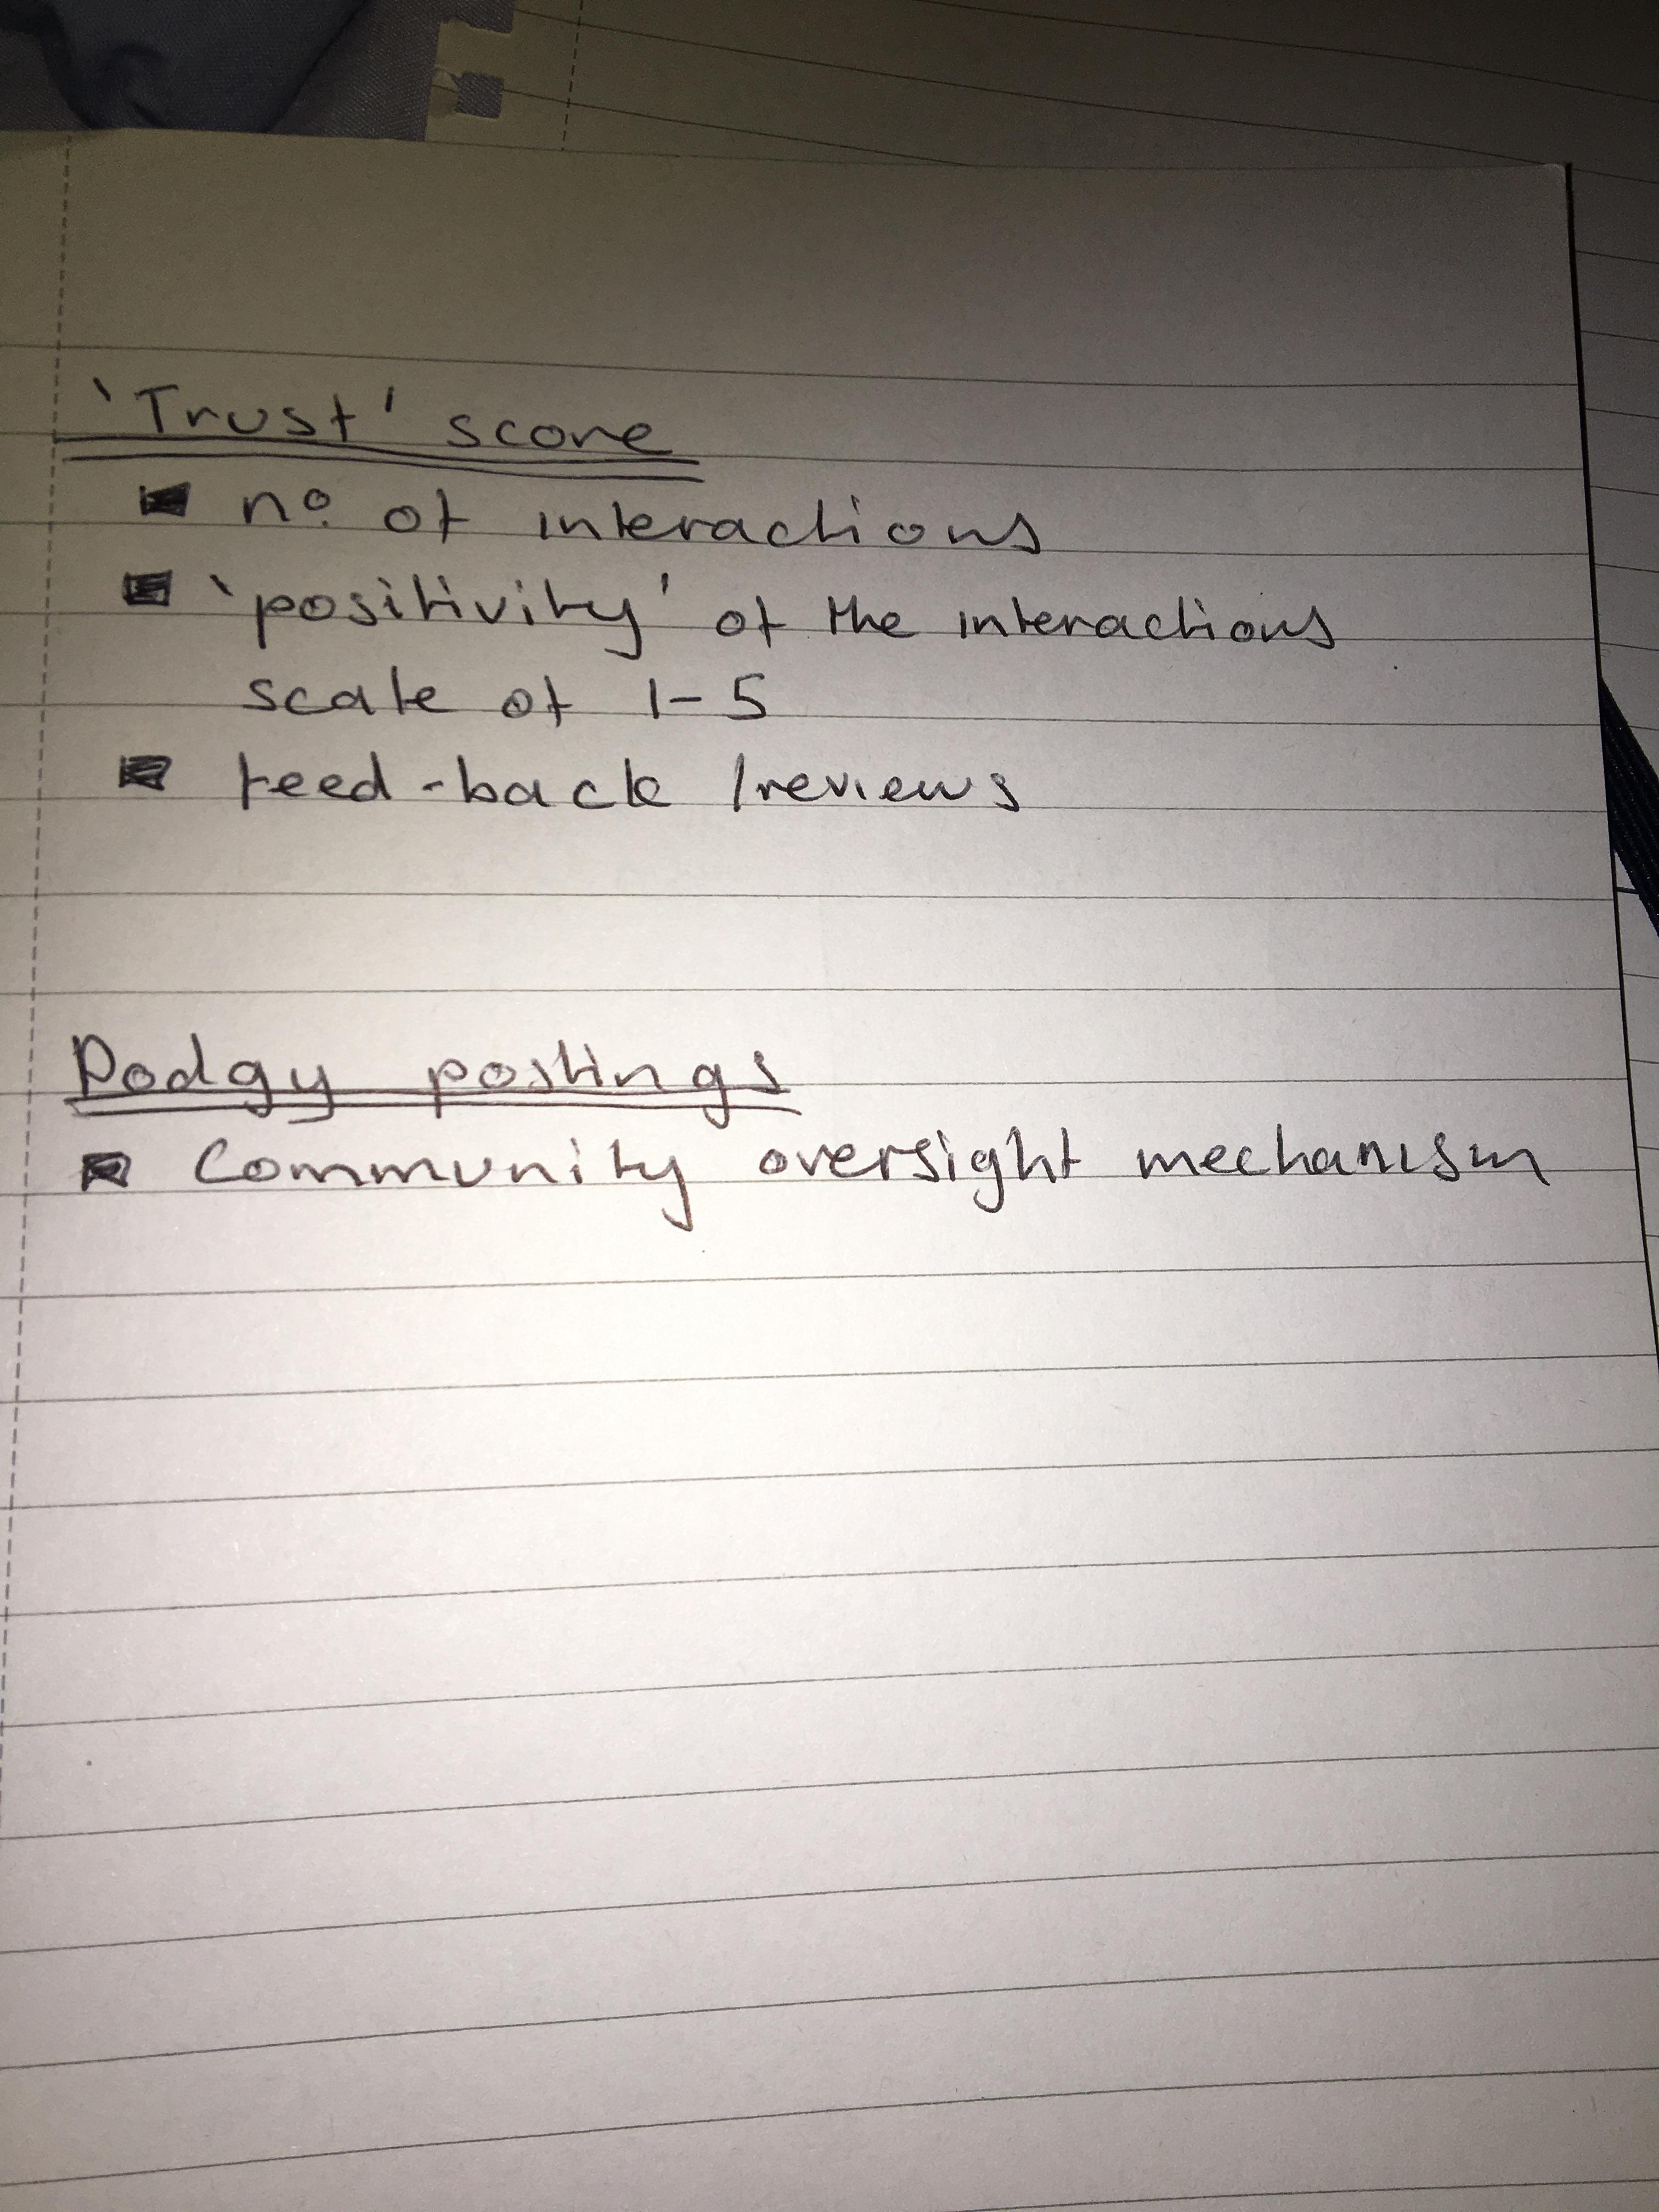 'Trust' score
▪ nº of interactions
▪ 'positivity' of the interactions
scale of 1-5
▪ feed-back /reviews
Dodgy postings
▪ Community oversight mechanism